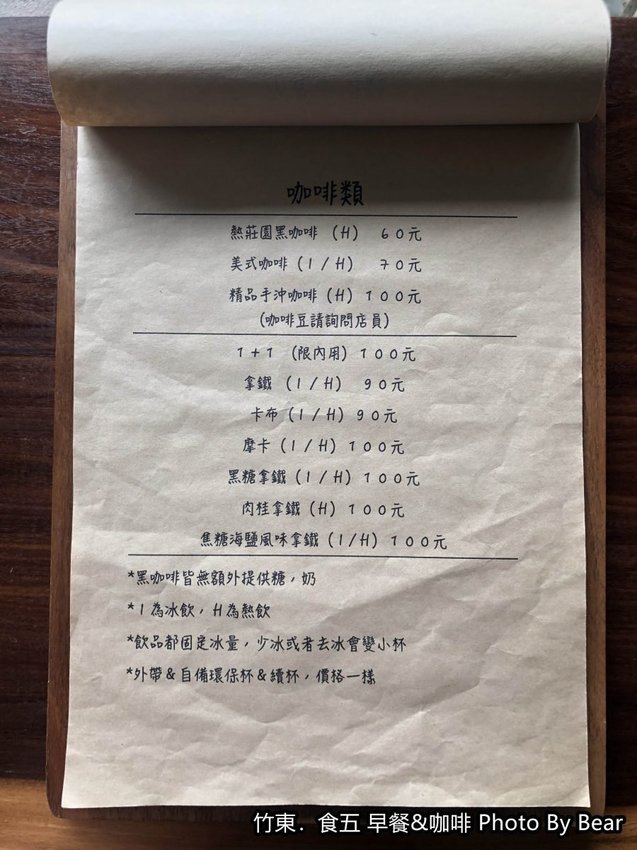 咖啡類
熱莊園黑咖啡 (H) 60元
美式咖啡 (I/H) 70元
精品手沖咖啡 (H) 100元
(咖啡豆請詢問店員)
1+1 (限內用) 100元
拿鐵 (I/H) 90元
卡布 (I/H) 90元
摩卡 (I/H) 100元
黑糖拿鐵 (I/H) 100元
肉桂拿鐵 (H) 100元
焦糖海鹽風味拿鐵 (I/H) 100元
*黑咖啡皆無額外提供糖，奶
*I為冰飲，H為熱飲
*飲品都固定冰量，少冰或者去冰會變小杯
*外帶&自備環保杯&續杯，價格一樣
竹東．食五 早餐&咖啡 Photo By Bear